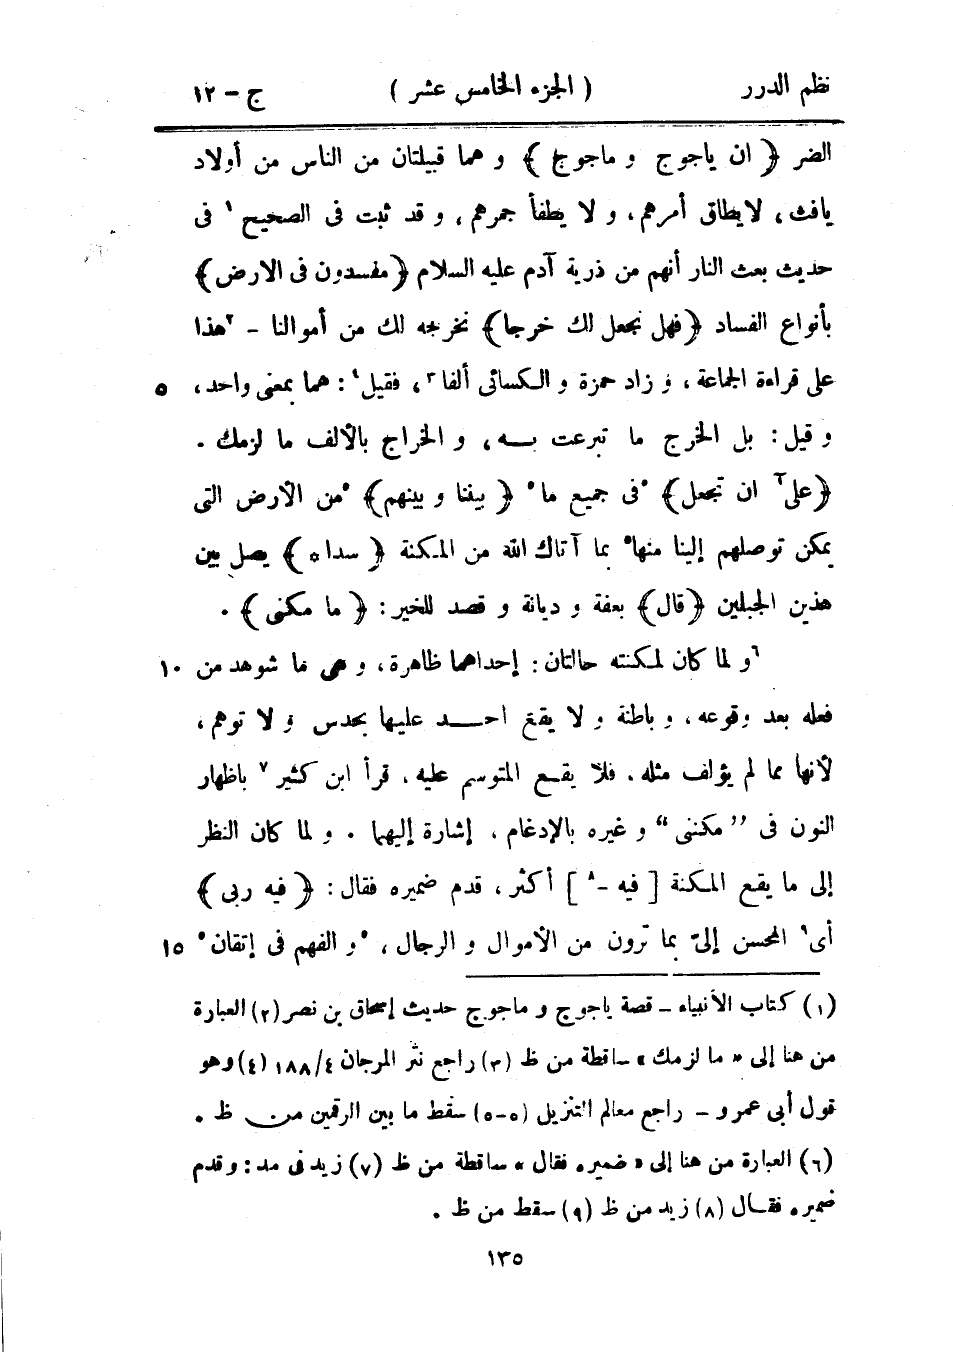 نظم الدرر ( الجزء الخامس عشر ) ج – ١٢
الضر ﴿ ان ياجوج و ماجوج ﴾ و هما قبيلتان من الناس من أولاد
يافث ، لايطاق أمرهم ، و لا يطفأ جمرهم ، و قد ثبت فى الصحيح ١ فى
حديث بعث النار أنهم من ذرية آدم عليه السلام ﴿ مفسدون فى الارض ﴾
بأنواع الفساد ﴿ فهل نجعل لك خرجا ﴾ نخرجه لك من أموالنا – ٢هذا
على قراءة الجماعة ، و زاد حمزة و الكسائى ألفا ٣ ، فقيل ٤ : هما بمعنى واحد ، ٥
و قيل : بل الخرج ما تبرعت بـــه ، و الخراج بالألف ما لزمك .
﴿ على٢ ان تجعل ﴾ ٥فى جميع ما٥ ﴿ بيننا و بينهم ﴾ ٥من الأرض التى
يمكن توصلهم إلينا منها٥ بما آتاك الله من المكنة ﴿ سدا ه ﴾ يصل بين
هذين الجبلين ﴿ قال ﴾ بعفة و ديانة و قصد للخير : ﴿ ما مكنى ﴾ .
٦و لما كان لمكنته حالتان : إحداهما ظاهرة ، و هى ما شوهد من ١٠
فعله بعد وقوعه ، و باطنة و لا يقع احـــد عليها بحدس و لا توهم ،
لأنها مما لم يؤلف مثله ، فلا يقـع المتوسم عليه ، قرأ ابن كثير ٧ باظهار
النون فى ”مكننى“ و غيره بالإدغام ، إشارة إليهما . و لما كان النظر
إلى ما يقع المكنة [ فيه –٨ ] أكثر ، قدم ضميره فقال : ﴿ فيه ربى ﴾
أى٩ المحسن إلىّ بما ترون من الأموال و الرجال ، ٥و الفهم فى إتقان٥ ١٥
(١) كتاب الأنبياء – قصة ياجوج و ماجوج حديث إسحاق بن نصر (٢) العبارة
من هنا إلى « ما لزمك » ساقطة من ظ (٣) راجع نثر المرجان ٤/١٨٨ (٤) وهو
قول أبى عمرو – راجع معالم التنزيل (٥–٥) سقط ما بين الرقمين من ظ .
(٦) العبارة من هنا إلى « ضميره فقال » ساقطة من ظ (٧) زيد فى مد : وقدم
ضميره فقـال (٨) زيد من ظ (٩) سقط من ظ .
١٣٥